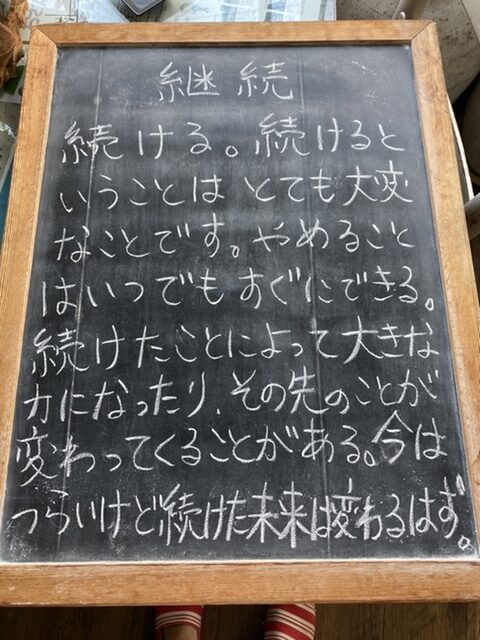 継続
続ける。続けると
いうことはとても大変
なことです。やめること
はいつでもすぐにできる。
続けたことによって大きな
力になったり、その先のことが
変わってくることがある。今は
つらいけど続けた未来は変わるはず。